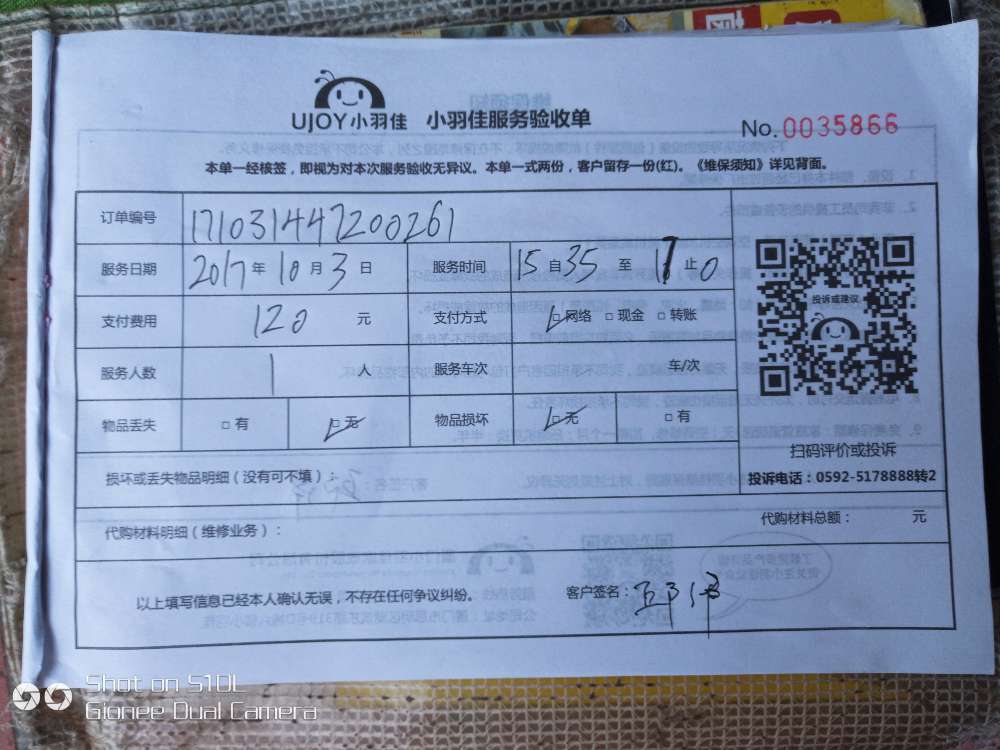 UJOY小羽佳 小羽佳服务验收单
No.0035866
本单一经核签，即视为对本次服务验收无异议。本单一式两份，客户留存一份(红)。《维保须知》详见背面。
订单编号 171031447200261
服务日期 2017年10月3日 服务时间 15自35至17止0
支付费用 120 元 支付方式 □网络 □现金 □转账
投诉或建议
服务人数 1 人 服务车次 车/次
物品丢失 □有 □无 物品损坏 □无 □有
扫码评价或投诉
损坏或丢失物品明细（没有可不填）：
投诉电话：0592-5178888转2
代购材料明细（维修业务）：
代购材料总额： 元
以上填写信息已经本人确认无误，不存在任何争议纠纷。 客户签名：
Shot on S10L
Gionee Dual Camera